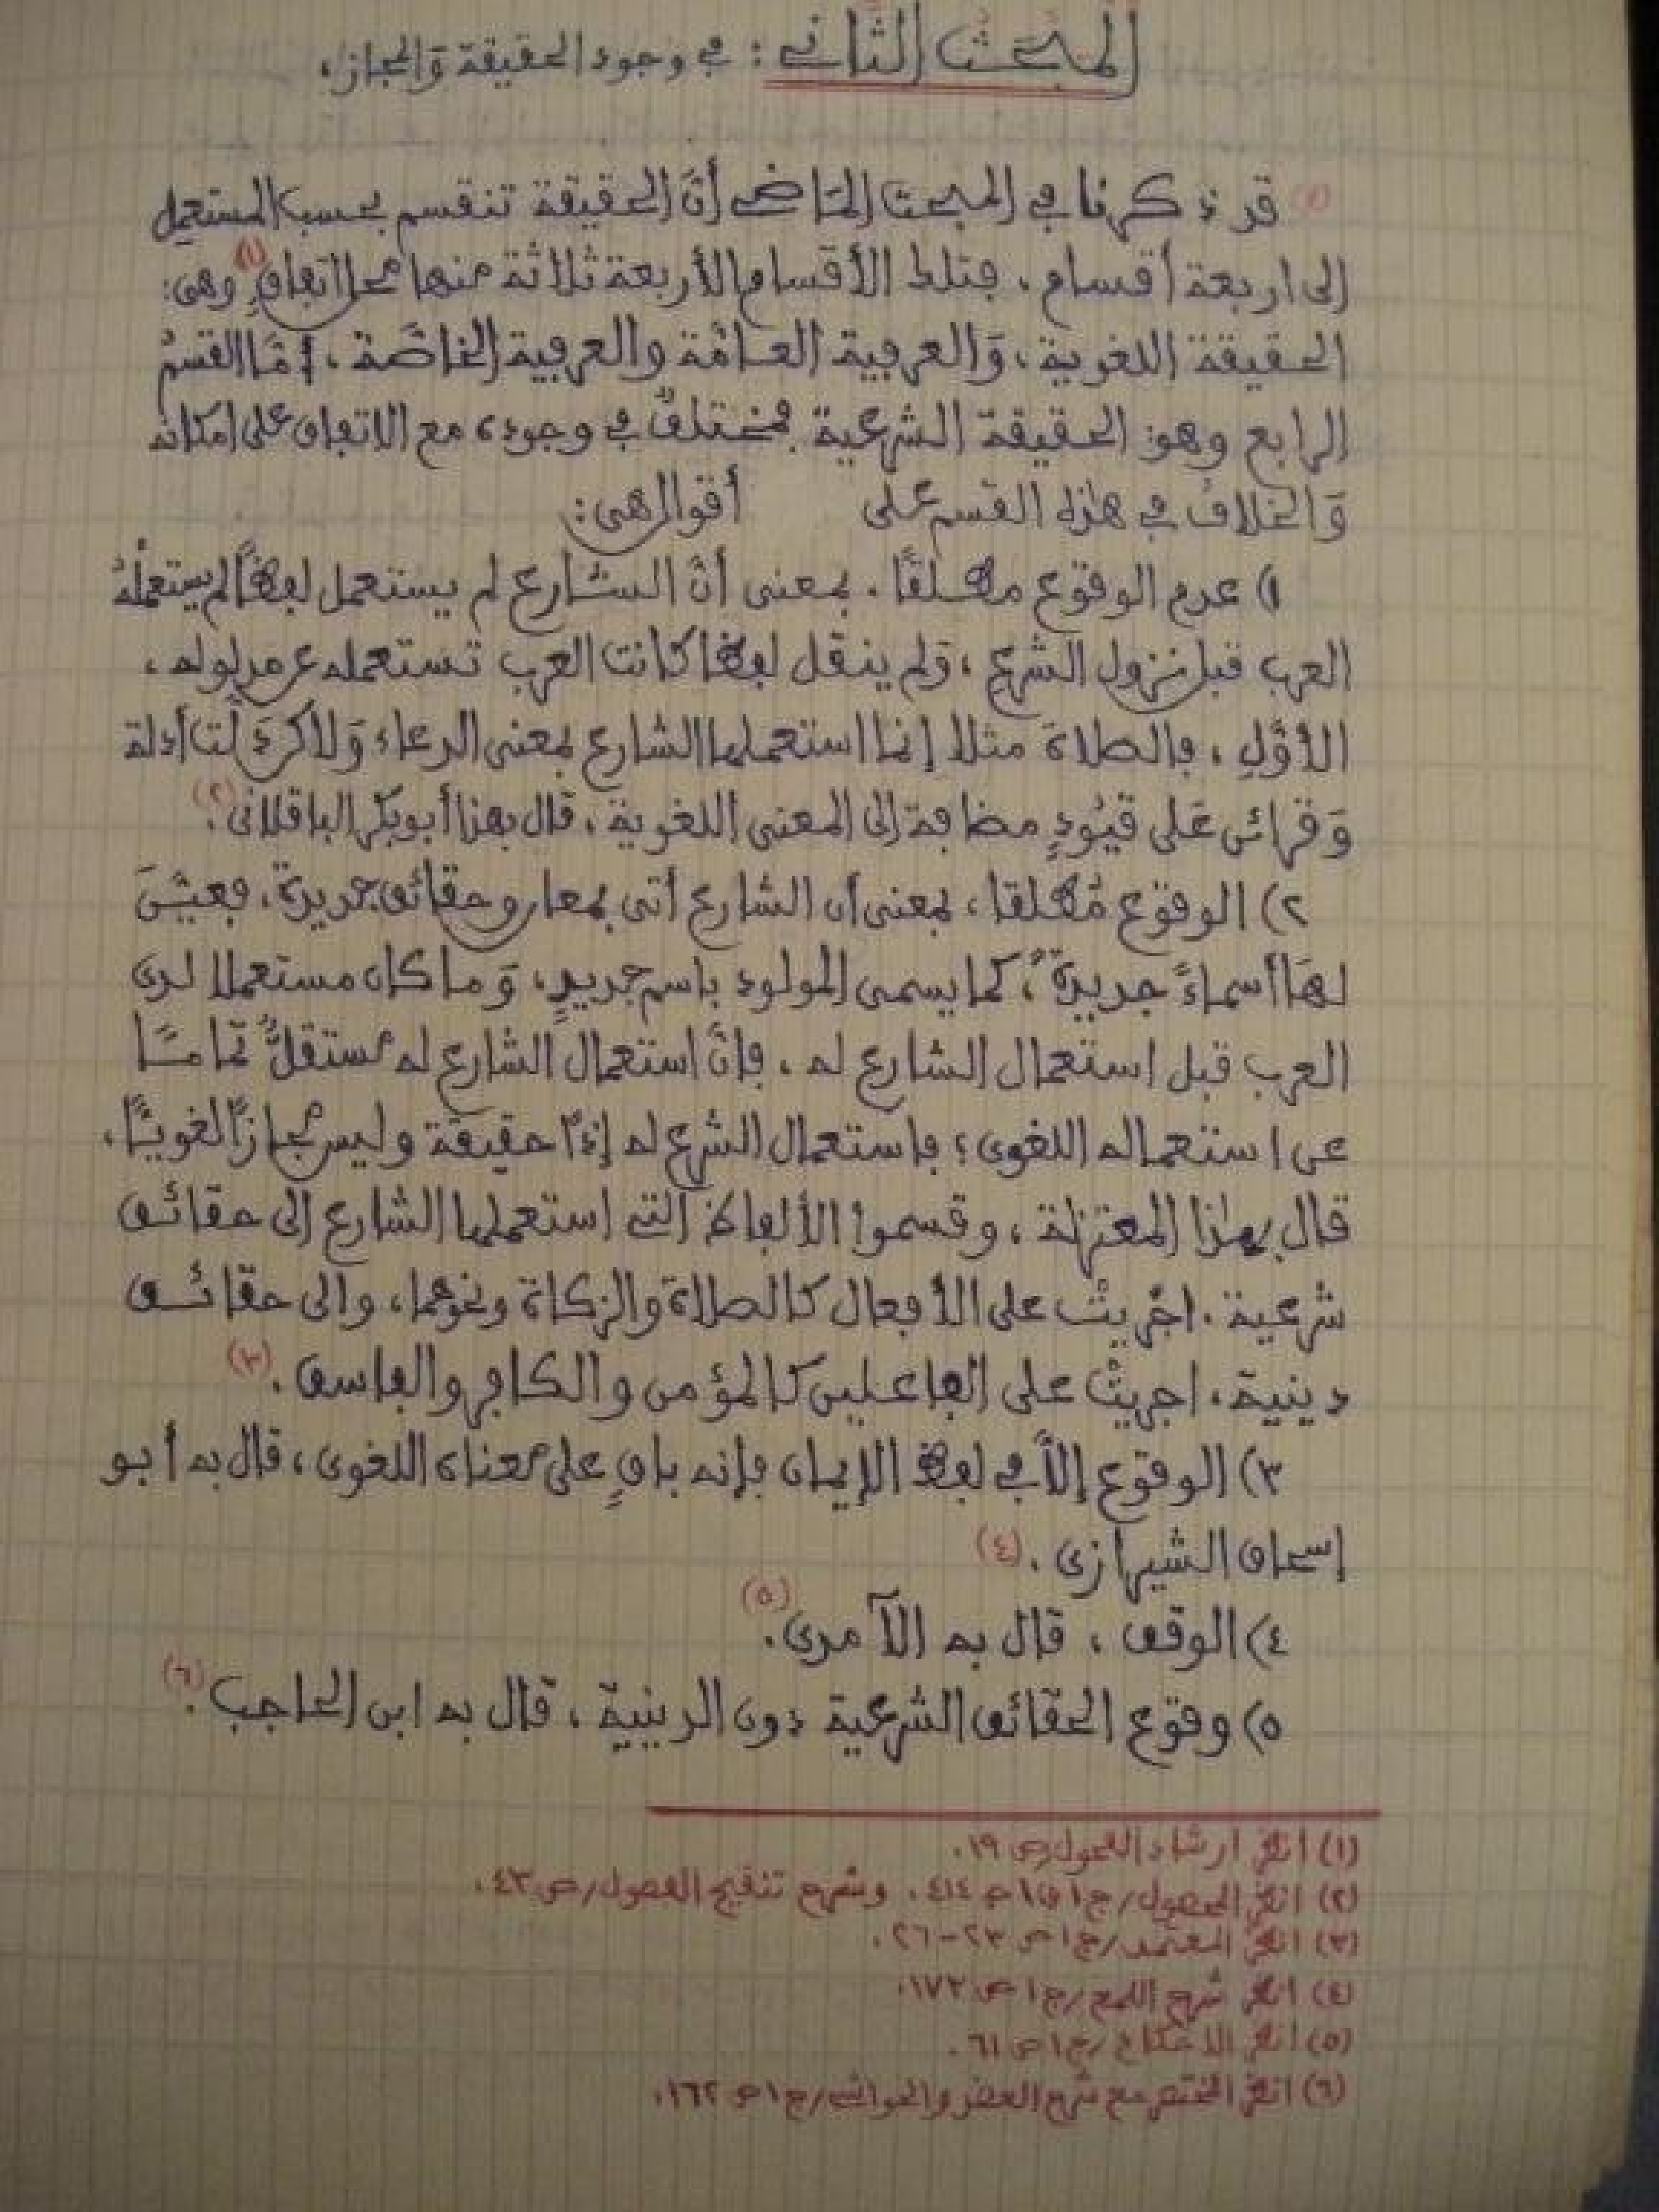 المبحث الثاني : في وجود الحقيقة وَالمجاز.
قد ذكرنا في المبحث المَاضي أنَّ الحقيقة تنقسم بحسب المستعمِل
إلى اربعة أقسام ، فتلك الأقسام الأربعة ثلاثة منها محل اتفاقٍ (١) وهي:
الحقيقة اللغوية ، وَالعرفية العامّة والعرفية الخاصَّة ، أمَّا القسمُ
الرابع وهو: الحقيقة الشرعية فمختلفٌ في وجوده مع الاتفاق على امكانه
وَالخلافُ في هٰذه القسم على أقوال هي:
١) عدم الوقوع مطلقًا . بمعنى أنَّ الشارع لم يستعمل لفظًا لم يستعملْهُ
العرب قبل نزول الشرع ، وَلم ينقل لفظا كانت العرب تستعمله عن مدلوله ،
الأوَّلِ ، فالصلاة مثلا إنما استعملها الشارع بمعنى الدعاء وَلاكن دَلَّت أدلة
وَقرائن عَلى قيُودٍ مضافة إلى المعنى اللغوية ، قال بهذا أبو بكر الباقلاني . (٢)
٢) الوقوع مُطلقا ، بمعنى أن الشارع أتى بمعان وحقائق جديدة ، فعيَّنَ
لهَا أسماءً جديدةً ، كما يسمى المولود باسم جديدٍ ، وَما كان مستعملا لدى
العرب قبل استعمال الشارع له ، فإنَّ استعمال الشارع له مستقلٌّ تمَامًا
عن استعماله اللغوي ؛ فاستعمال الشرع له إذًا حقيقة وليس مجازًا لغويًّا ،
قال بهٰذا المعتزلة ، وقسموا الألفاظ التي استعملها الشارع إلى حقائق
شرعية . اجْريتْ على الأفعال كالصلاة والزكاة ونحوهما ، والى حقائق
دينية ، اجريتْ على الفاعلين كالمؤمن والكافر والفاسق . (٣)
٣) الوقوع إلاَّ في لفظ الإيمان فإنه باقٍ على معناه اللغوي ، قال به أبو
إسحاق الشيرازي . (٤)
٤) الوقف ، قال به الآمدي . (٥)
٥) وقوع الحقائق الشرعية دون الدينية ، قال به ابن الحاجب . (٦)
(١) انظر ارشاد الفحول/ص ١٩.
(٢) انظر المحصول/ج١ ق١ ص ٤١٤. وشرح تنقيح الفصول/ص ٤٣.
(٣) انظر المعتمد/ج١ ص ٢٣-٢٦.
(٤) انظر شرح اللمع/ج١ ص ١٧٢.
(٥) انظر الاحكام/ج١ ص ٦١.
(٦) انظر المختصر مع شرح العضد والحواشي/ج١ ص ١٦٢.